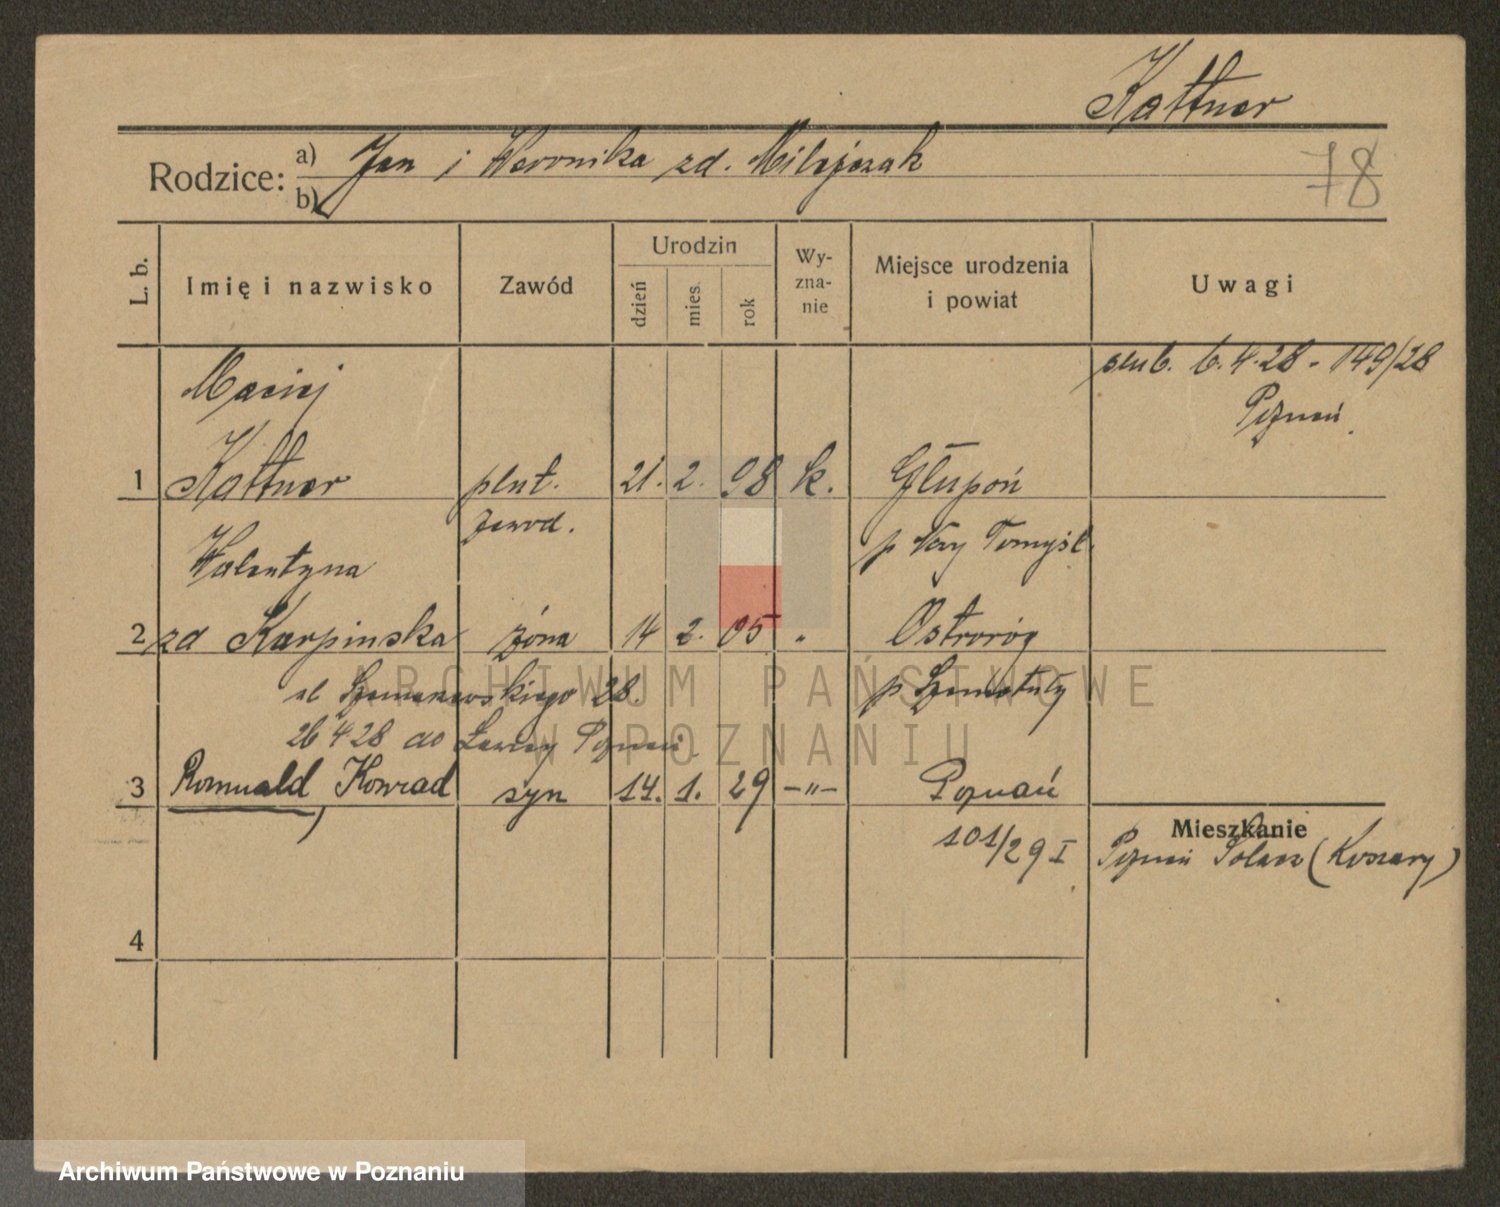 Kattner
Rodzice: a) Jan i Weronika zd. Milejczak
b)
78
L. b. Imię i nazwisko Zawód Urodzin dzień mies. rok Wy-zna-nie Miejsce urodzenia i powiat Uwagi
Maciej ślub. 6.4.28 - 149/28
Poznań
1 Kattner plut. 21. 2. 98 k. Głupoń
zawod. p Nowy Tomyśl.
Walentyna
2 zd Karpinska żona 14 2. 05 " Ostroróg
ul 28. p Szamotuły
26 4 28 do Ławicy Poznań
3 Romuald, Konrad syn 14. 1. 29 -"- Poznań
101/29 I
Mieszkanie
Poznań Sołacz (Koszary)
4
ARCHIWUM PAŃSTWOWE
W POZNANIU
Archiwum Państwowe w Poznaniu